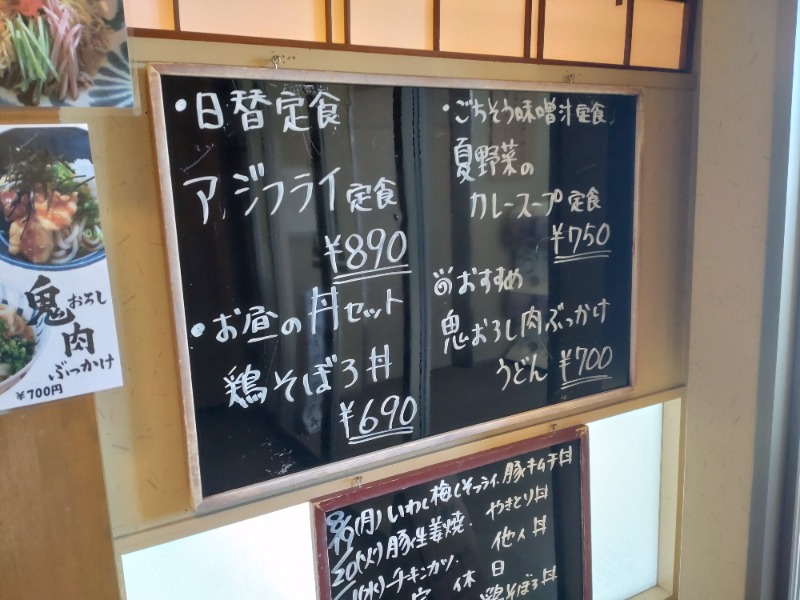 ・日替定食
アジフライ定食
¥890
・お昼の丼セット
鶏そぼろ丼
¥690
・ごちそう味噌汁定食
夏野菜の
カレースープ定食
¥750
おすすめ
鬼おろし肉ぶっかけ
うどん ¥700
鬼おろし
肉
ぶっかけ
¥700円
(月) いわし梅しそフライ. 豚キムチ丼
20(火) 豚生姜焼. やきとり丼
(水) チキンカツ. 他人丼
定休日
鶏そぼろ丼